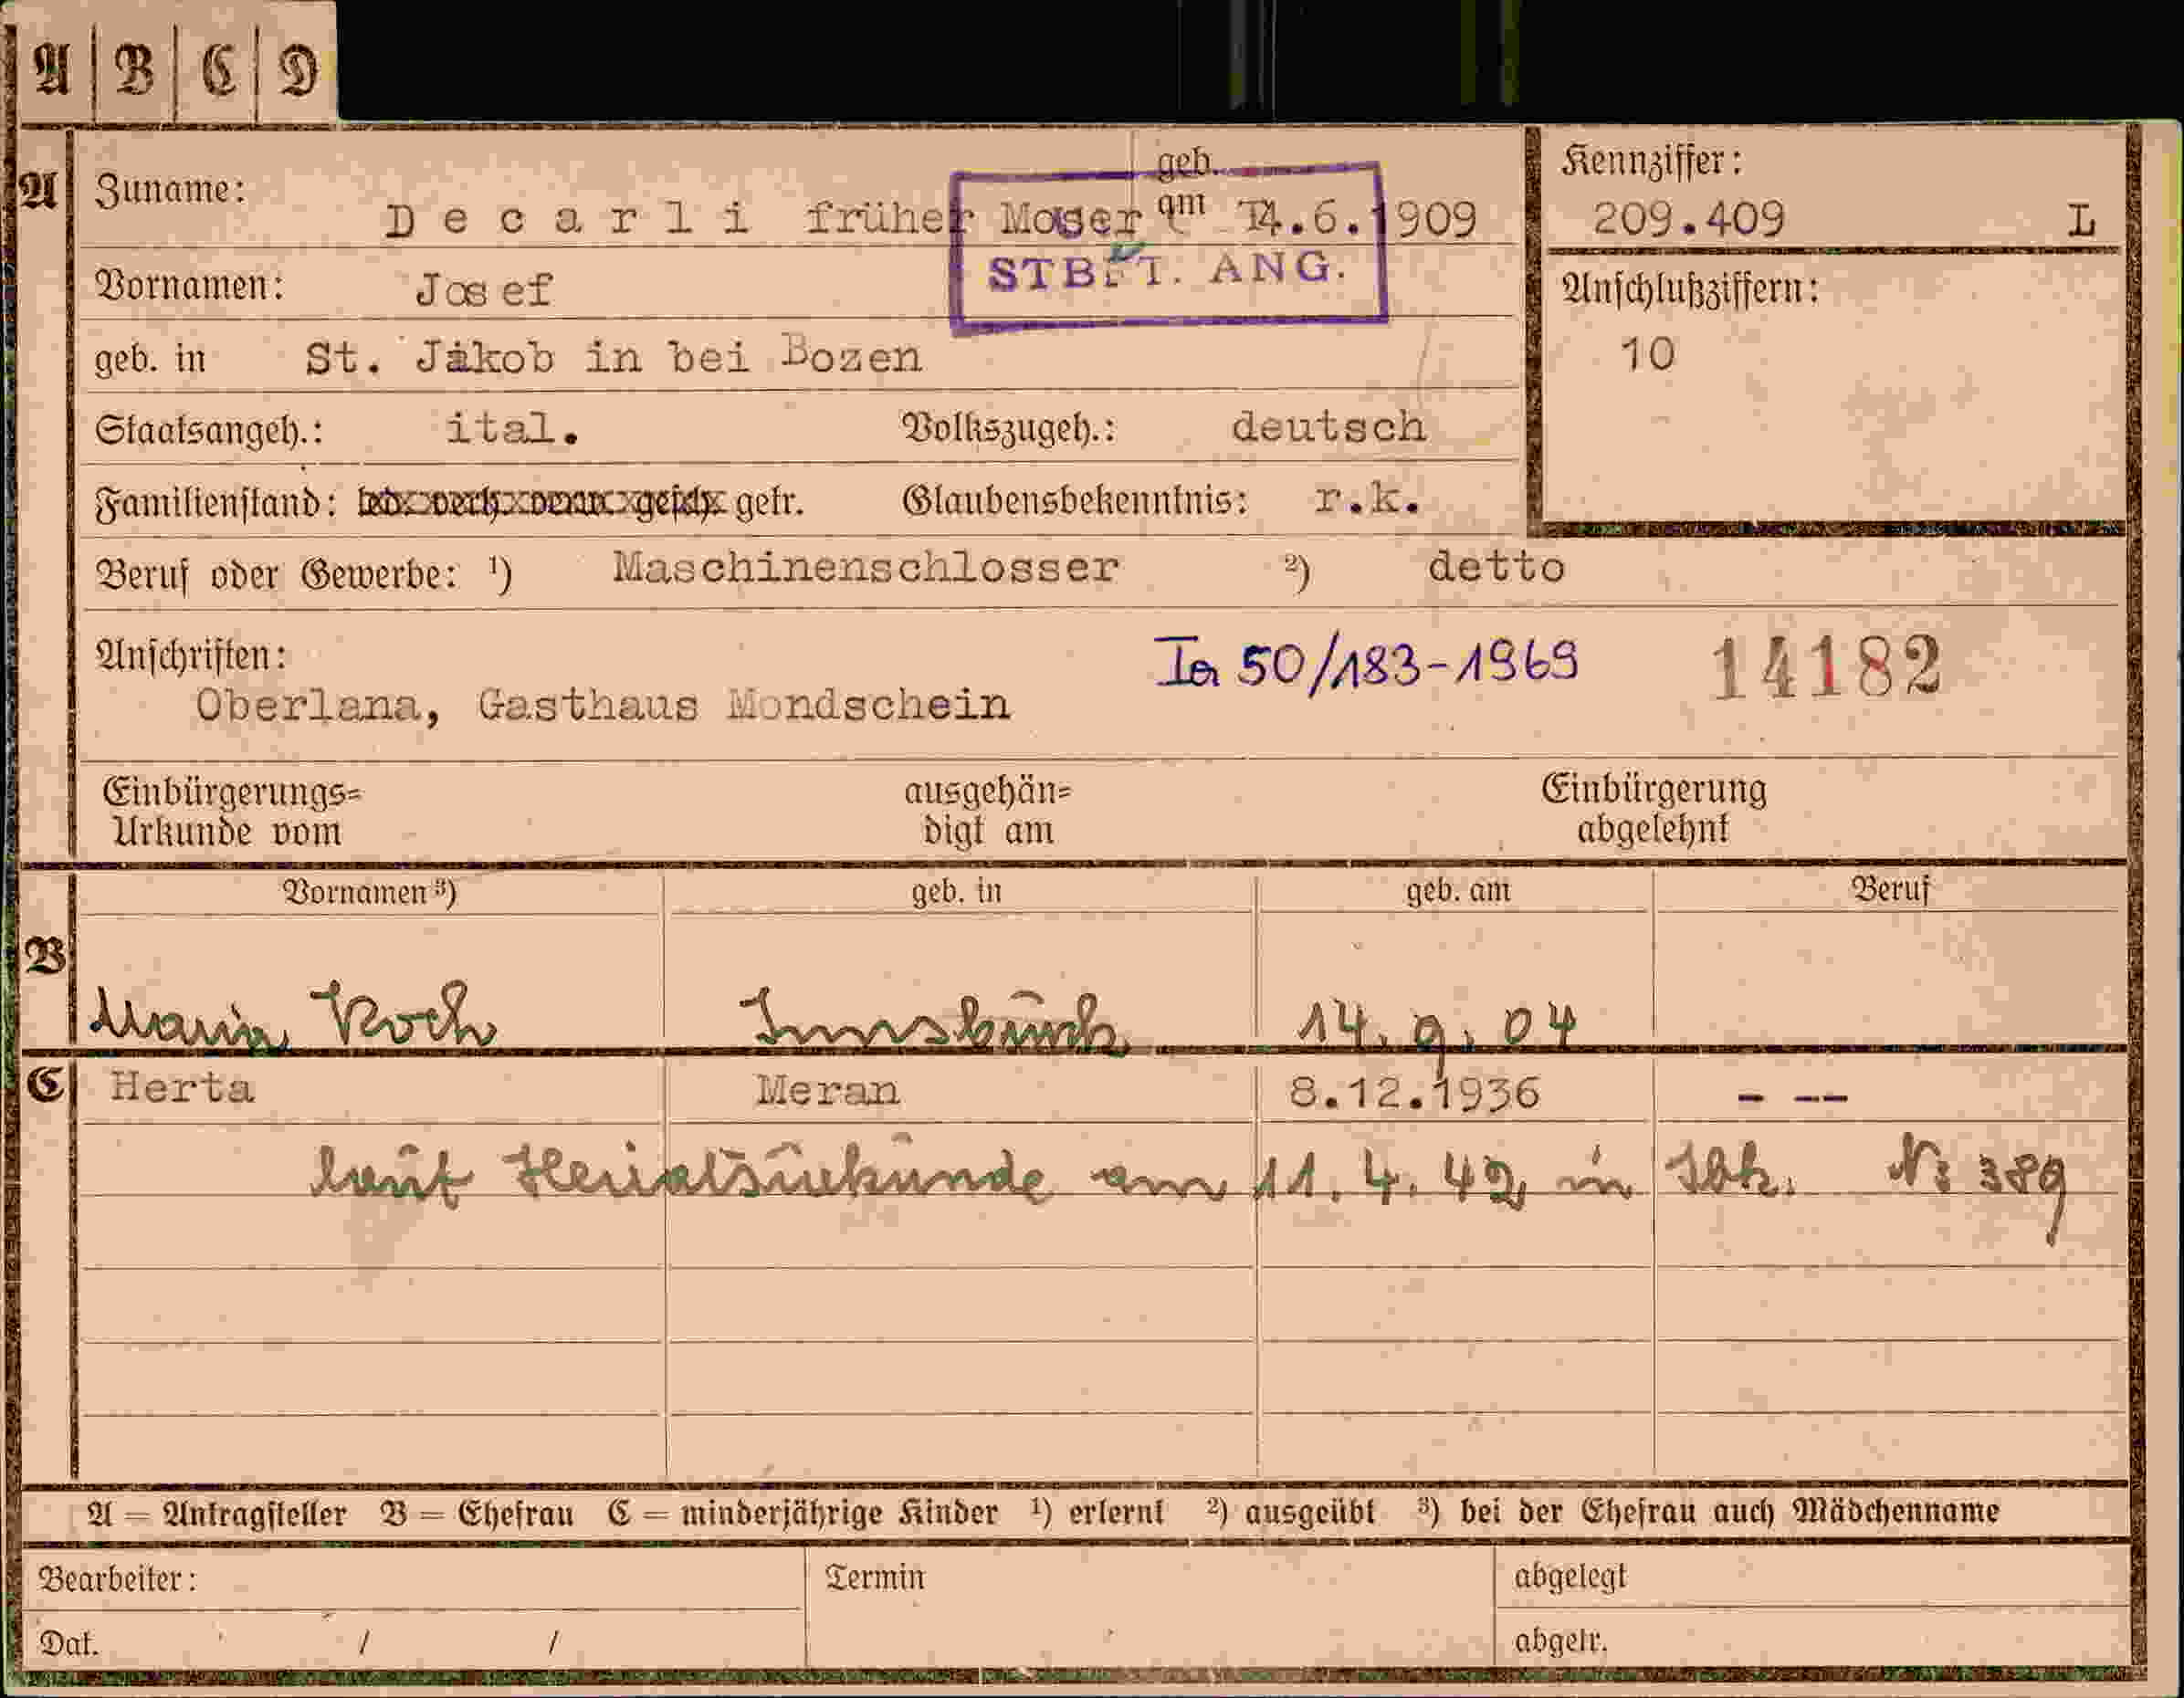 A | B | C | D
A Zuname: Decarli früher Moser geb. am 14.6.1909
Kennziffer: 209.409 L
Vornamen: Josef
STBFT. ANG.
Anschlußziffern:
geb. in St. Jakob in bei Bozen
10
Staatsangeh.: ital. Volkszugeh.: deutsch
Familienstand: led. verh. verw. gesch. getr. Glaubensbekenntnis: r.k.
Beruf oder Gewerbe: ¹) Maschinenschlosser ²) detto
Anschriften: Ia 50/183-1969 14182
Oberlana, Gasthaus Mondschein
Einbürgerungs= ausgehän= Einbürgerung
Urkunde vom digt am abgelehnt
Vornamen ³) geb. in geb. am Beruf
B Maria Koch Innsbruck 14.9.04
C Herta Meran 8.12.1936 - --
laut Heiratsurkunde am 11.4.42 in Ibk. No 389
A = Antragsteller B = Ehefrau C = minderjährige Kinder ¹) erlernt ²) ausgeübt ³) bei der Ehefrau auch Mädchenname
Bearbeiter: Termin abgelegt
Dat. / / abgetr.